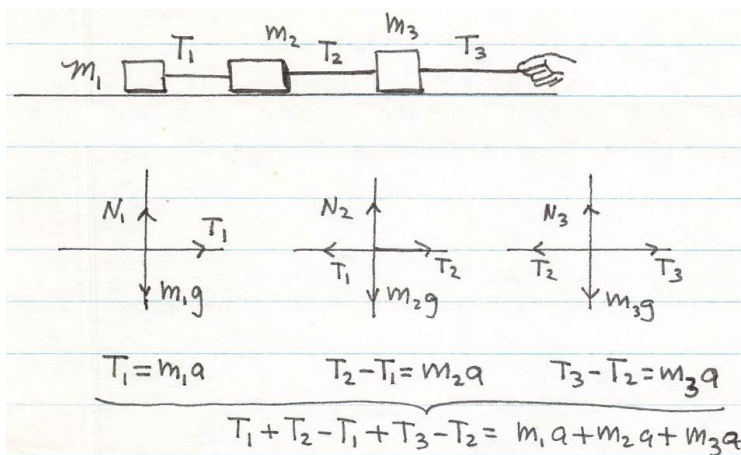 m₁ T₁ m₂ T₂ m₃ T₃
N₁ N₂ N₃
T₁ T₁ T₂ T₂ T₃
m₁g m₂g m₃g
T₁ = m₁a T₂ - T₁ = m₂a T₃ - T₂ = m₃a
T₁ + T₂ - T₁ + T₃ - T₂ = m₁a + m₂a + m₃a